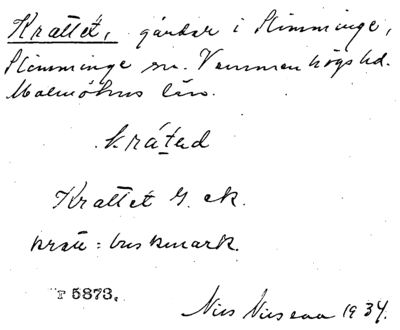 Krattet, gårdar i Slimminge,
Slimminge sn. Vemmenhögs hd.
Malmöhus län.
kráted
Krattet G. ek.
kratt = buskmark.
5873.
Nils Nilsson 1934.